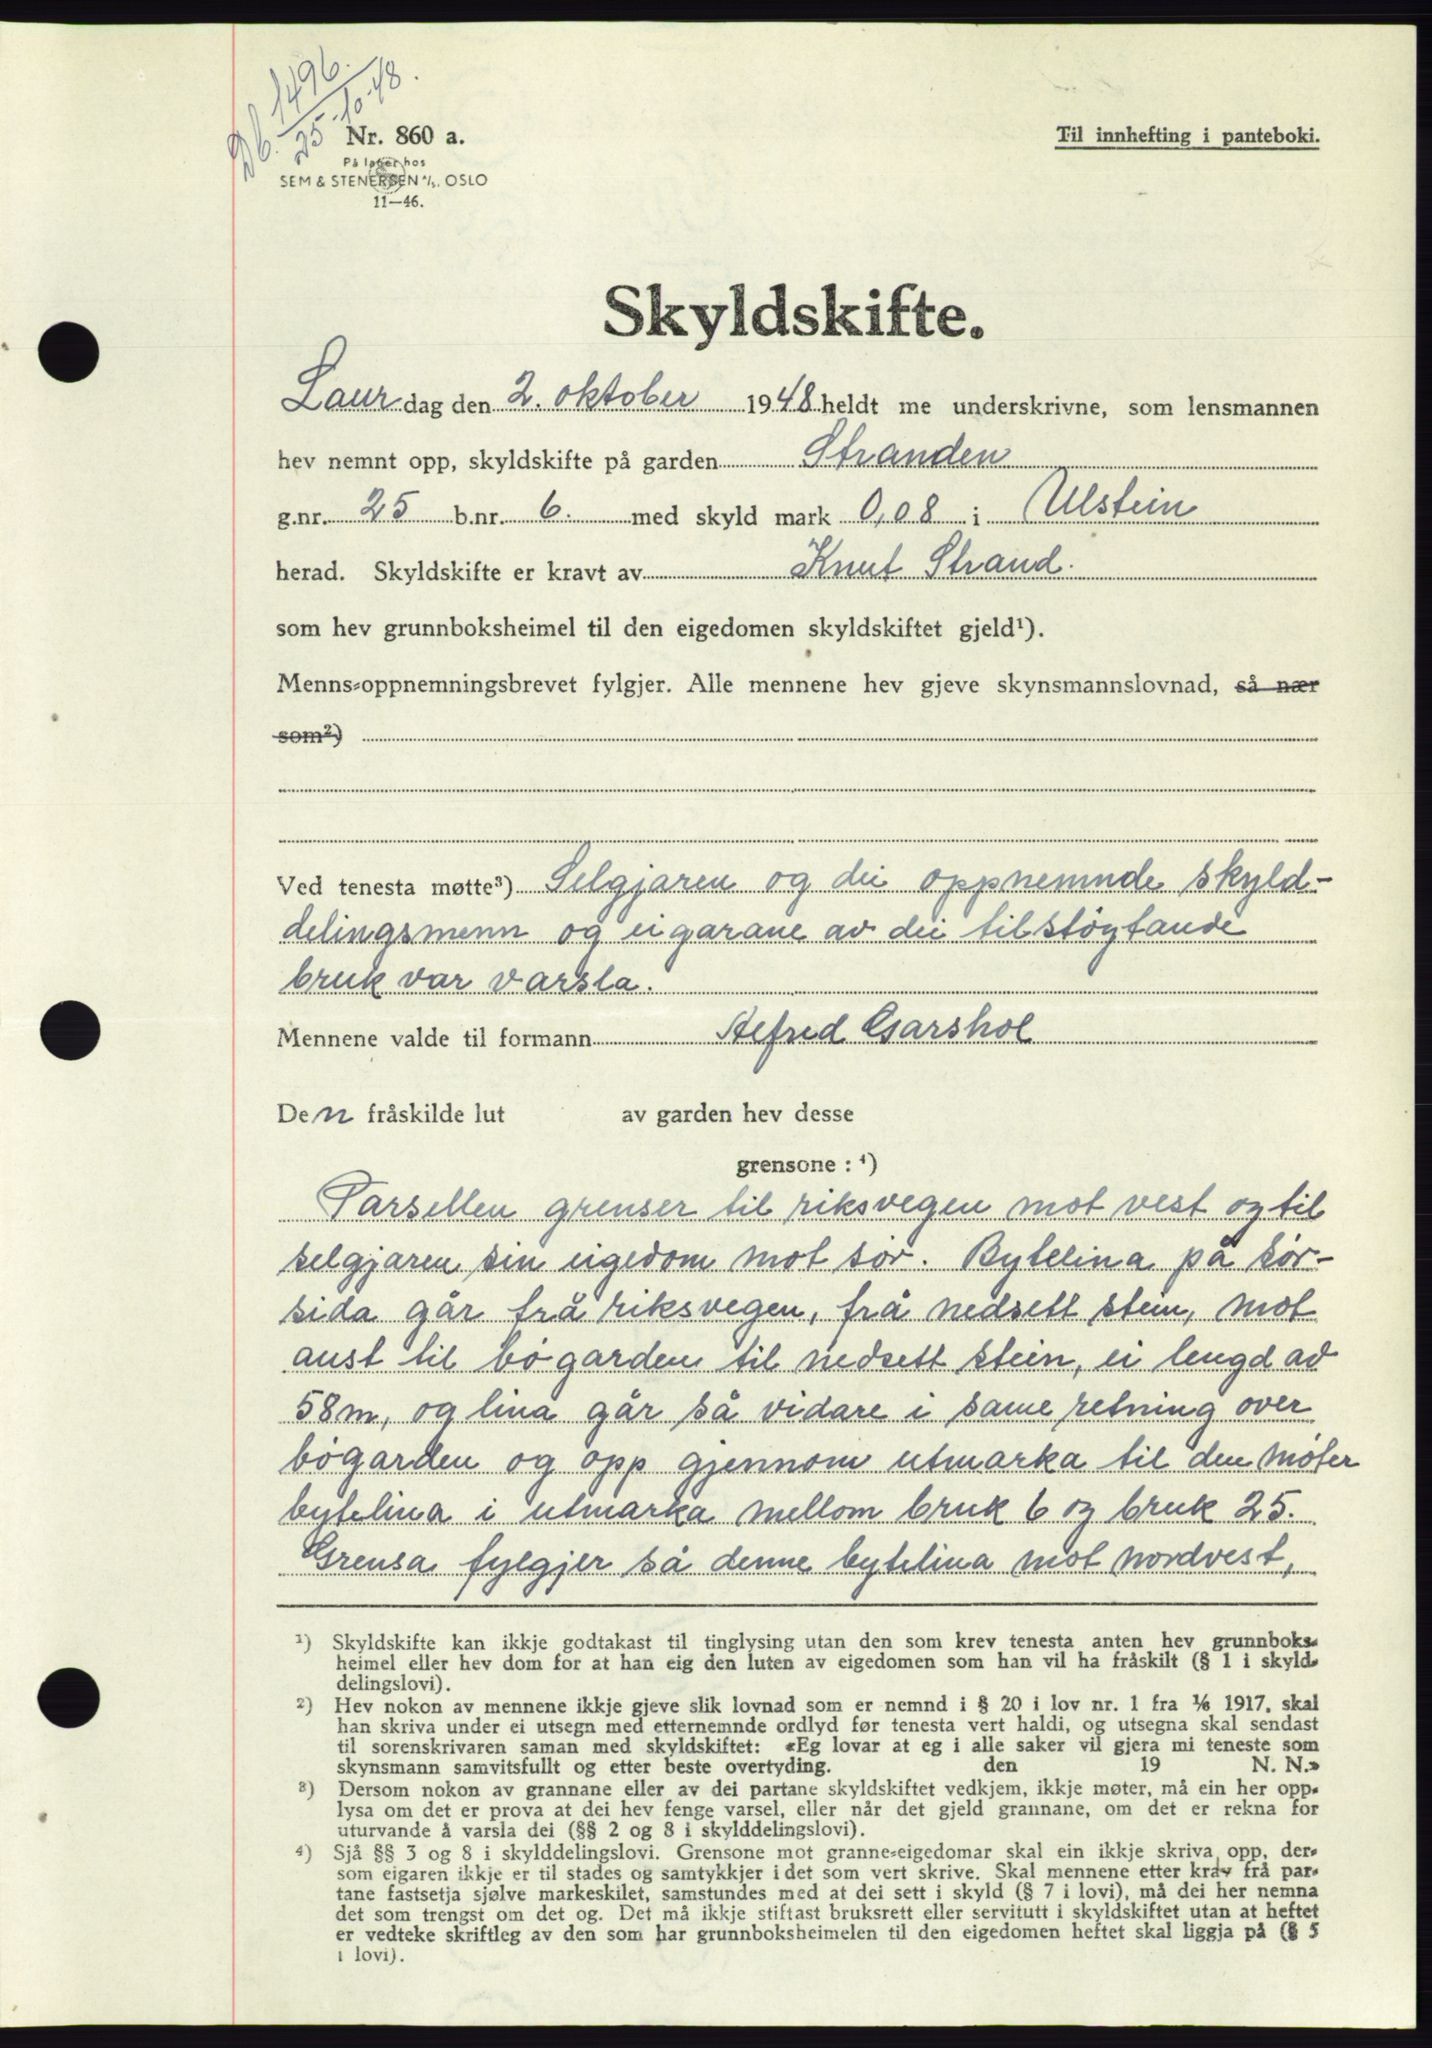 Db. 1496.
25-10-48.
Nr. 860 a.
På lager hos
SEM & STENERSEN A/S. OSLO
11—46.
Til innhefting i panteboki.
Skyldskifte.
Laurdag den 2. oktober 1948 heldt me underskrivne, som lensmannen
hev nemnt opp, skyldskifte på garden Stranden
g.nr. 25 b.nr. 6. med skyld mark 0,08 i Ulstein
herad. Skyldskifte er kravt av Knut Strand.
som hev grunnboksheimel til den eigedomen skyldskiftet gjeld¹).
Menns-oppnemningsbrevet fylgjer. Alle mennene hev gjeve skynsmannslovnad, så nær
som²)
Ved tenesta møtte³) Selgjaren og dei oppnemnde skyld-
delingsmenn og eigarane av dei tilstøytande
bruk var varsla.
Mennene valde til formann Alfred Garshol
Den fråskilde lut av garden hev desse
grensone : ⁴)
Parsellen grenser til riksvegen mot vest og til
selgjaren sin eigedom mot sør. Bytelina på sør-
sida går frå riksvegen, frå nedsett stein, mot
aust til bøgarden til nedsett stein, ei lengd av
58m, og lina går så vidare i same retning over
bøgarden og opp gjennom utmarka til den møter
bytelina i utmarka mellom bruk 6 og bruk 25.
Grensa fylgjer så denne bytelina mot nordvest,
¹) Skyldskifte kan ikkje godtakast til tinglysing utan den som krev tenesta anten hev grunnboks-
heimel eller hev dom for at han eig den luten av eigedomen som han vil ha fråskilt (§ 1 i skyld-
delingslovi).
²) Hev nokon av mennene ikkje gjeve slik lovnad som er nemnd i § 20 i lov nr. 1 fra ¹/₆ 1917, skal
han skriva under ei utsegn med etternemnde ordlyd før tenesta vert haldi, og utsegna skal sendast
til sorenskrivaren saman med skyldskiftet: «Eg lovar at eg i alle saker vil gjera mi teneste som
skynsmann samvitsfullt og etter beste overtyding. den 19 N. N.»
³) Dersom nokon av grannane eller av dei partane skyldskiftet vedkjem, ikkje møter, må ein her opp-
lysa om det er prova at dei hev fenge varsel, eller når det gjeld grannane, om det er rekna for
uturvande å varsla dei (§§ 2 og 8 i skylddelingslovi).
⁴) Sjå §§ 3 og 8 i skylddelingslovi. Grensone mot granne-eigedomar skal ein ikkje skriva opp, der-
som eigaren ikkje er til stades og samtykkjer i det som vert skrive. Skal mennene etter krav frå par-
tane fastsetja sjølve markeskilet, samstundes med at dei sett i skyld (§ 7 i lovi), må dei her nemna
det som trengst om det og. Det må ikkje stiftast bruksrett eller servitutt i skyldskiftet utan at heftet
er vedteke skriftleg av den som har grunnboksheimelen til den eigedomen heftet skal liggja på (§ 5
i lovi).